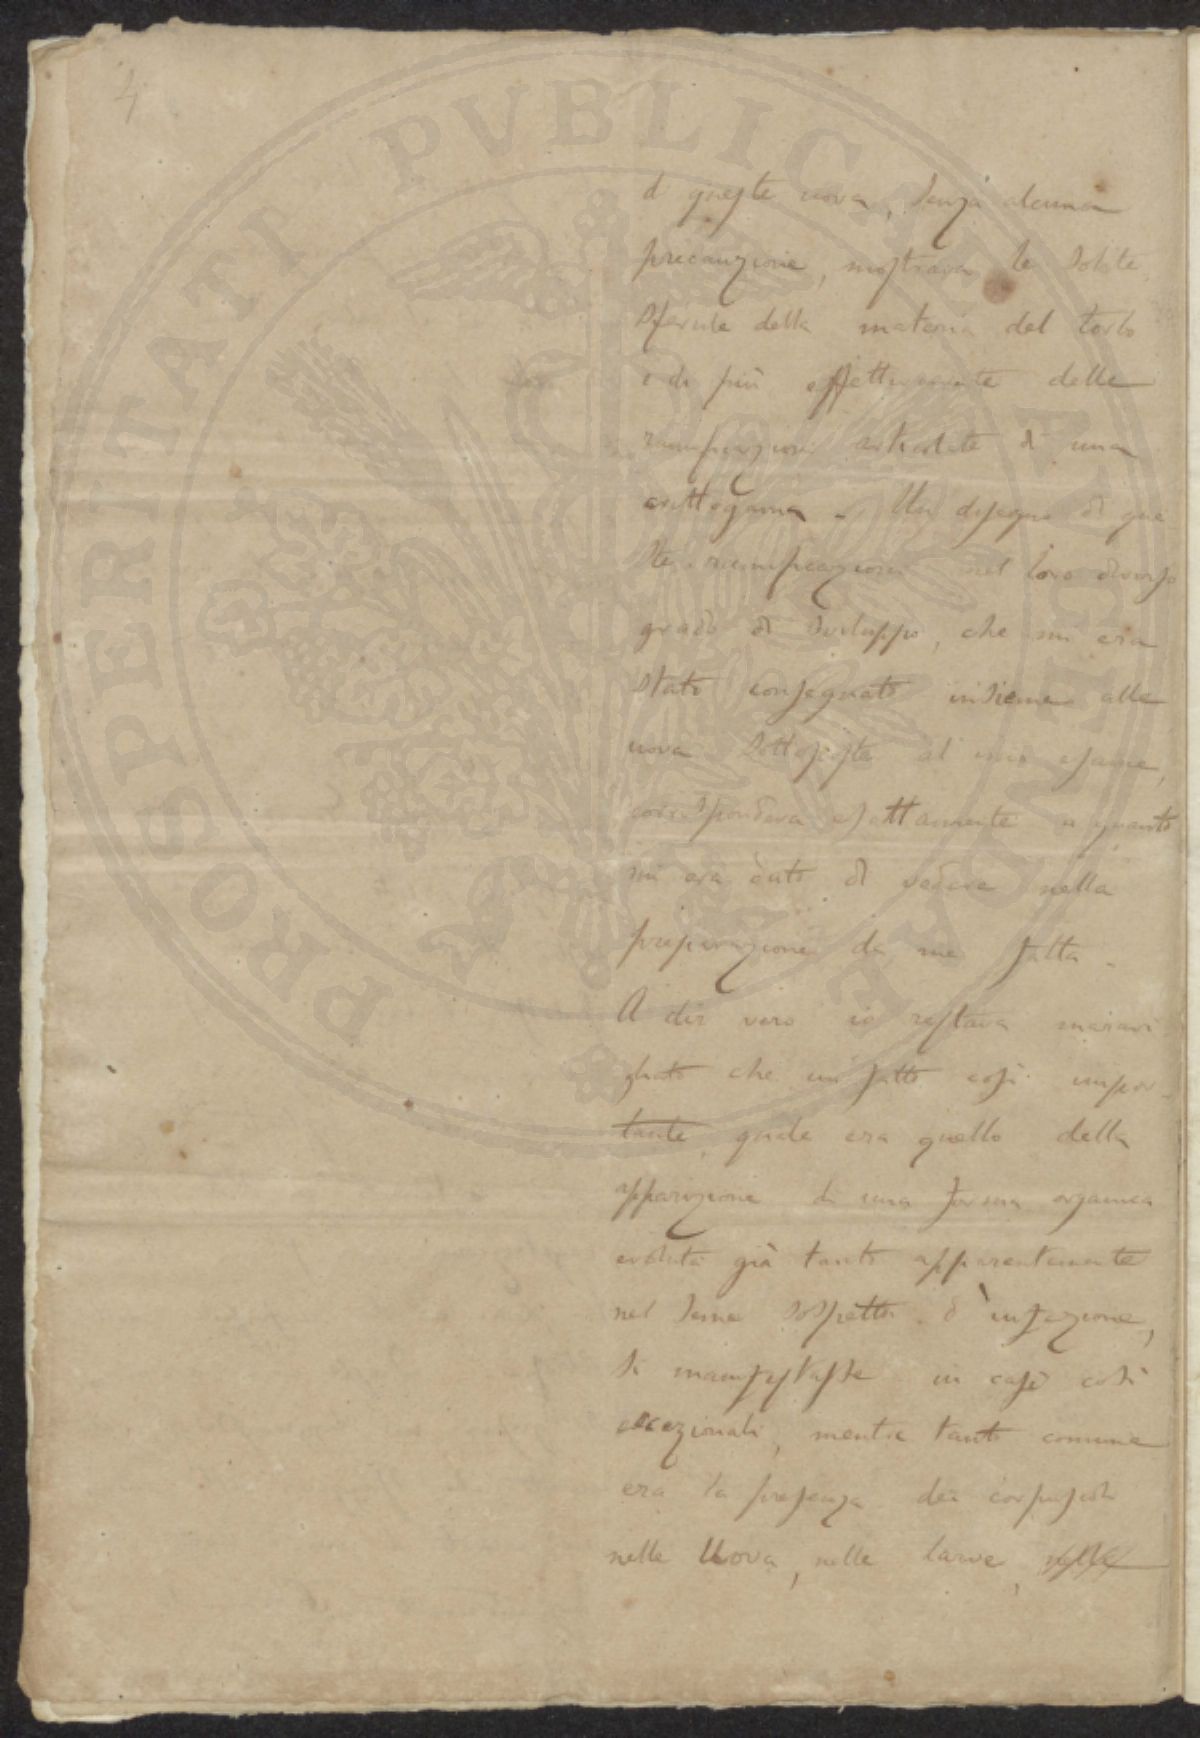 4
PROSPERITATI PVBLICAE AVGENDAE
d queste uova, senza alcuna
precauzione, mostrava le solite
sferule della materia del torlo
e di più effettivamente delle
ramificazioni articolate di una
crittogama - Un disegno di que
ste ramificazioni nel loro diverso
grado di sviluppo, che mi era
stato consegnato insieme alle
uova sottoposte al mio esame,
corrispondeva esattamente a quanto
mi era dato di vedere nella
preparazione da me fatta -
A dir vero io restava maravi
gliato che un fatto così impor-
tante, quale era quello della
apparizione di una forma organica
evoluta già tanto apparentemente
nel seme sospetto d'infezione,
si manifestasse in casi così
eccezionali, mentre tanto comune
era la presenza dei corpuscoli
nelle uova, nelle larve,